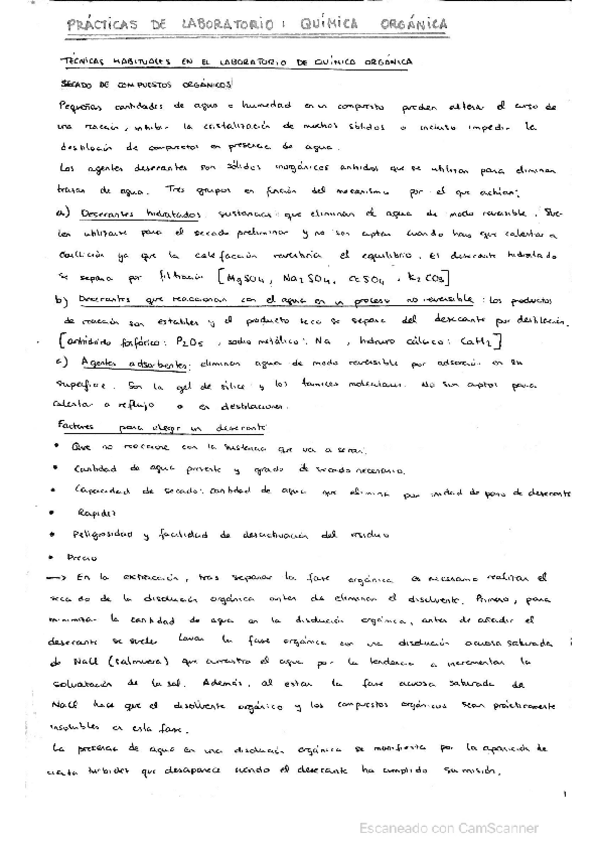 PRÁCTICAS DE LABORATORIO: QUÍMICA ORGÁNICA
TÉCNICAS HABITUALES EN EL LABORATORIO DE QUÍMICA ORGÁNICA
SECADO DE COMPUESTOS ORGÁNICOS
Pequeñas cantidades de agua o humedad en un compuesto pueden alterar el curso de
una reacción, inhibir la cristalización de muchos sólidos o incluso impedir la
destilación de compuestos en presencia de agua.
Los agentes desecantes son sólidos inorgánicos anhidros que se utilizan para eliminar
trazas de agua. Tres grupos en función del mecanismo por el que actúan:
a) Desecantes hidratados sustancias que eliminan el agua de modo reversible. Sue-
len utilizarse para el secado preliminar y no son aptos cuando haya que calentar a
ebullición ya que la calefacción revertiría el equilibrio. El desecante hidratado
se separa por filtración [MgSO4, Na2SO4, CaSO4, K2CO3]
b) Desecantes que reaccionan con el agua en un proceso no reversible: Los productos
de reacción son estables y el producto seco se separa del desecante por destilación.
[anhídrido fosfórico: P2O5, sodio metálico: Na, hidruro cálcico: CaH2]
c) Agentes adsorbentes: eliminan agua de modo reversible por adsorción en su
superficie. Son la gel de sílice y los tamices moleculares. No son aptos para
calentar a reflujo o en destilaciones.
Factores para elegir un desecante
• Que no reaccione con la sustancia que va a secar.
• Cantidad de agua presente y grado de secado necesario.
• Capacidad de secado: cantidad de agua que elimina por unidad de peso de desecante
• Rapidez
• Peligrosidad y facilidad de desactivación del residuo
• Precio
→ En la extracción, tras separar la fase orgánica es necesario realizar el
secado de la disolución orgánica antes de eliminar el disolvente. Primero, para
minimizar la cantidad de agua en la disolución orgánica, antes de añadir el
desecante se suele lavar la fase orgánica con una disolución acuosa saturada
de NaCl (salmuera) que arrastra el agua por la tendencia a incrementar la
solvatación de la sal. Además, al estar la fase acuosa saturada de
NaCl hace que el disolvente orgánico y los compuestos orgánicos sean prácticamente
insolubles en esta fase.
La presencia de agua en una disolución orgánica se manifiesta por la aparición de
cierta turbidez que desaparece cuando el desecante ha cumplido su misión.
1
Escaneado con CamScanner